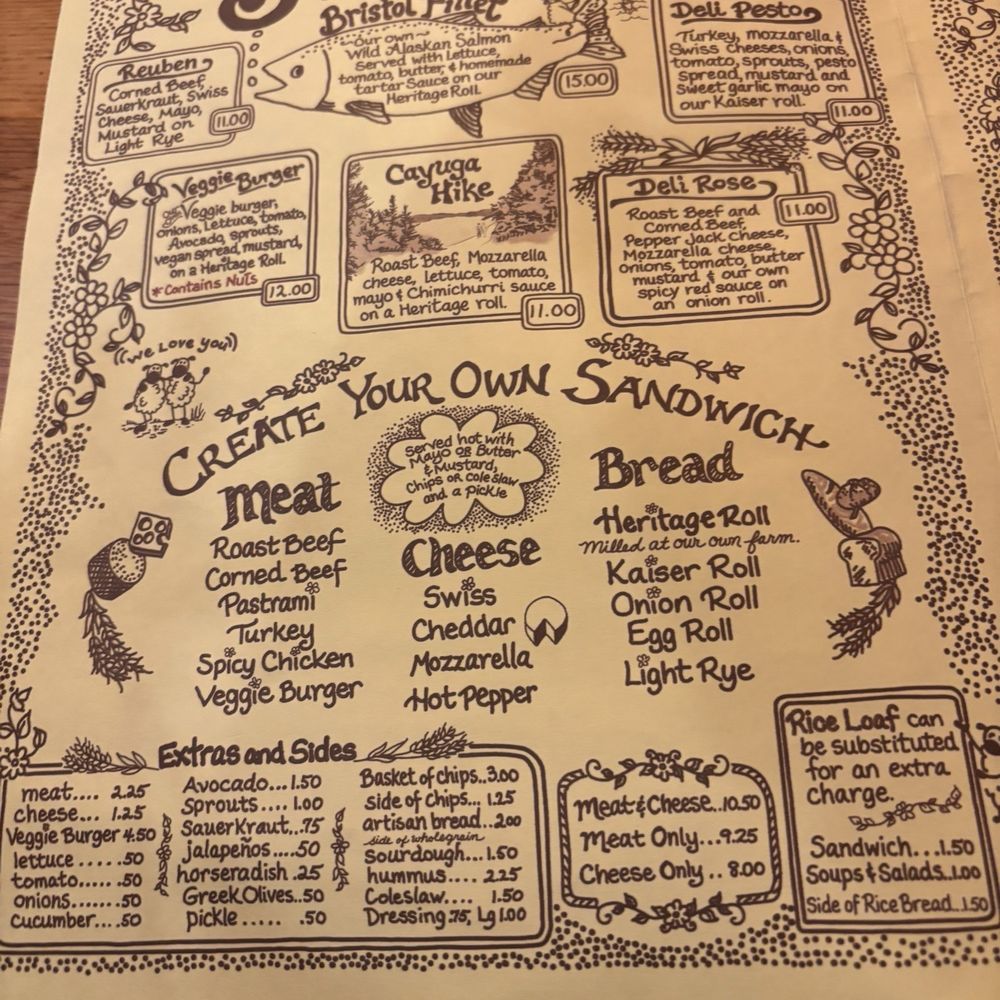 Bristol Fillet
~Our own~
Wild Alaskan Salmon
Served with Lettuce,
tomato, butter, & homemade
tartar Sauce on our
Heritage Roll.
15.00
Deli Pesto
Turkey, mozzarella &
Swiss Cheeses, onions,
tomato, sprouts, pesto
spread, mustard and
sweet garlic mayo on
our Kaiser roll.
11.00
Reuben
Corned Beef,
Sauerkraut, Swiss
Cheese, Mayo,
Mustard on
Light Rye
11.00
Veggie Burger
Our Veggie burger,
onions, Lettuce, tomato,
Avocado, sprouts,
vegan spread, mustard,
on a Heritage Roll.
*Contains Nuts
12.00
Cayuga
Hike
Roast Beef, Mozzarella
cheese, lettuce, tomato,
mayo & Chimichurri sauce
on a Heritage roll.
11.00
Deli Rose
11.00
Roast Beef and
Corned Beef,
Pepper jack cheese,
Mozzarella cheese,
onions, tomato, butter
mustard & our own
spicy red sauce on
an onion roll.
((we love you))
CREATE YOUR OWN SANDWICH
Served hot with
Mayo OR Butter
& Mustard,
Chips OR coleslaw
and a pickle
Meat
Roast Beef
Corned Beef
Pastrami
Turkey
Spicy Chicken
Veggie Burger
Cheese
Swiss
Cheddar
Mozzarella
Hot Pepper
Bread
Heritage Roll
Milled at our own farm.
Kaiser Roll
Onion Roll
Egg Roll
Light Rye
Extras and Sides
meat.... 2.25
cheese... 1.25
Veggie Burger 4.50
lettuce .....50
tomato..... .50
onions.......50
cucumber...50
Avocado... 1.50
Sprouts.... 1.00
Sauerkraut...75
jalapeños....50
horseradish .25
Greek Olives..50
pickle ..... .50
Basket of chips..3.00
side of chips... 1.25
artisan bread..2.00
side of wholegrain
sourdough...1.50
hummus.... 2.25
Coleslaw.... 1.50
Dressing .75, Lg 1.00
Meat & Cheese..10.50
Meat Only...9.25
Cheese Only .. 8.00
Rice Loaf can
be substituted
for an extra
charge.
Sandwich...1.50
Soups & Salads..1.00
Side of Rice Bread..1.50